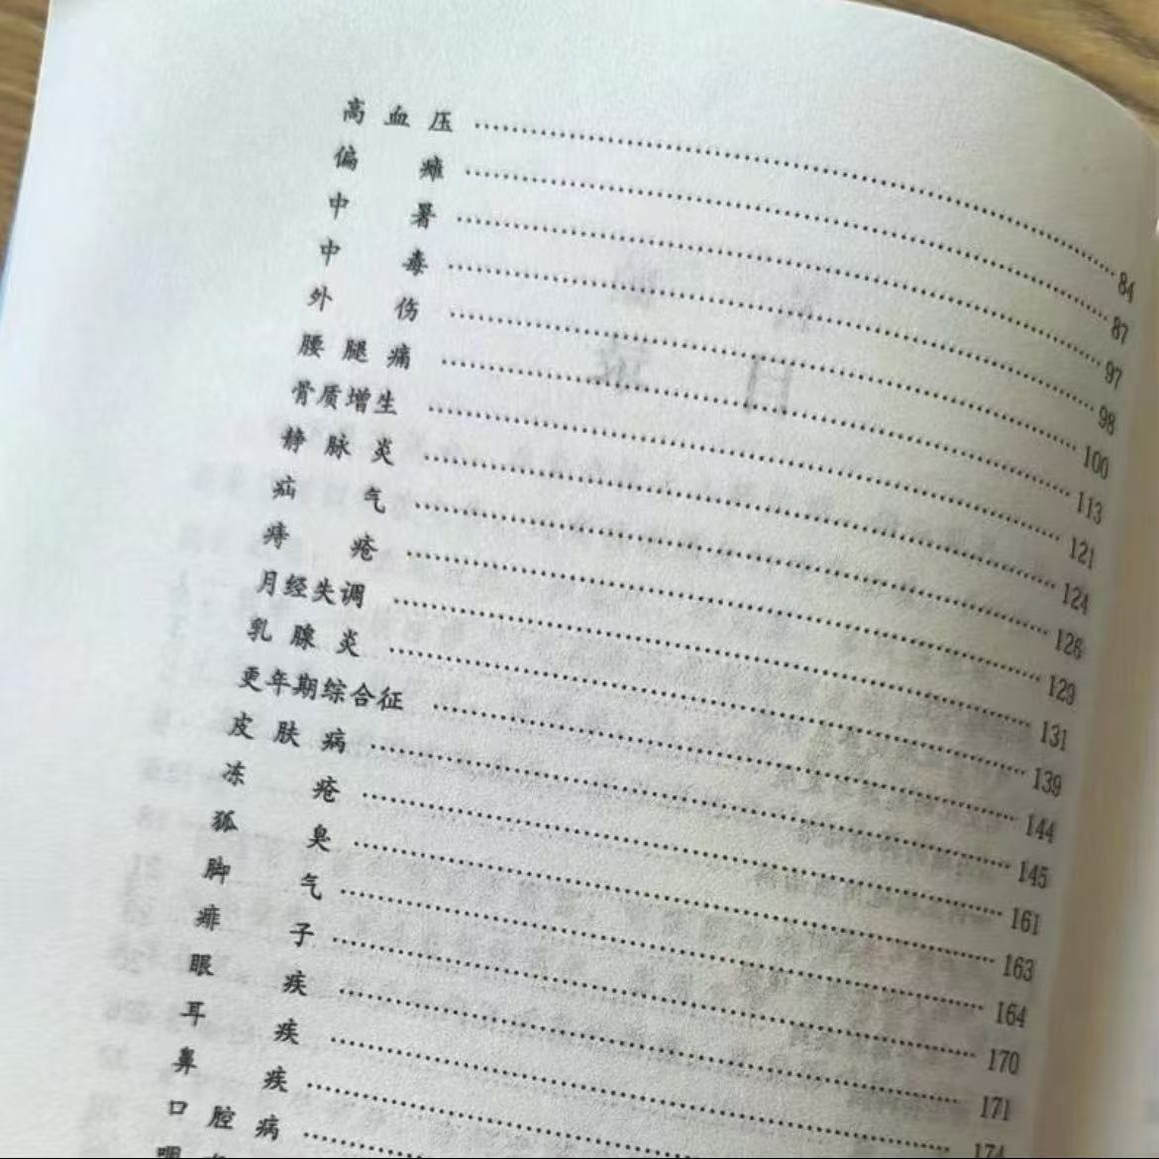 高血压 …… 84
偏瘫 …… 87
中暑 …… 97
中毒 …… 98
外伤 …… 100
腰腿痛 …… 113
骨质增生 …… 121
静脉炎 …… 124
疝气 …… 126
痔疮 …… 129
月经失调 …… 131
乳腺炎 …… 139
更年期综合征 …… 144
皮肤病 …… 145
冻疮 …… 161
狐臭 …… 163
脚气 …… 164
痱子 …… 170
眼疾 …… 171
耳疾 …… 174
鼻疾 ……
口腔病 ……